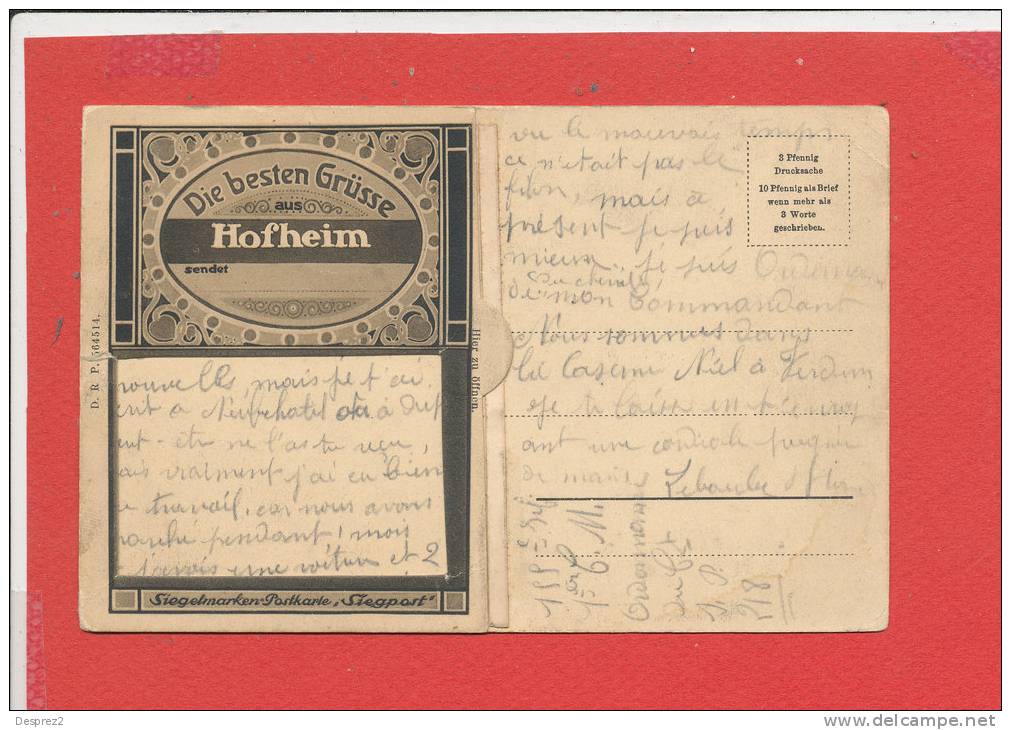 Die besten Grüsse
aus
Hofheim
sendet
D. R. P. 564514.
Hier zu öffnen.
nouvelles, mais je t'ai
à Neufchatel
ne l'as tu reçu,
vraiment j'ai eu bien
travail, car nous avons
pendant 1 mois
j'avais une voiture et 2
Siegelmarken-Postkarte „Siegpost“
vu le mauvais temps,
ce n'était pas le
filon, mais à
présent je suis
mieux, je suis Ordonnance
de mon Commandant
Nous sommes dans
la Caserne Niel à Verdun
Je te laisse en t'envoy
ant une cordiale poignée
de mains
3 Pfennig
Drucksache
10 Pfennig als Brief
wenn mehr als
3 Worte
geschrieben.
155
C. M.
Ordonnance
S. P.
218
Desprez2
www.delcampe.net